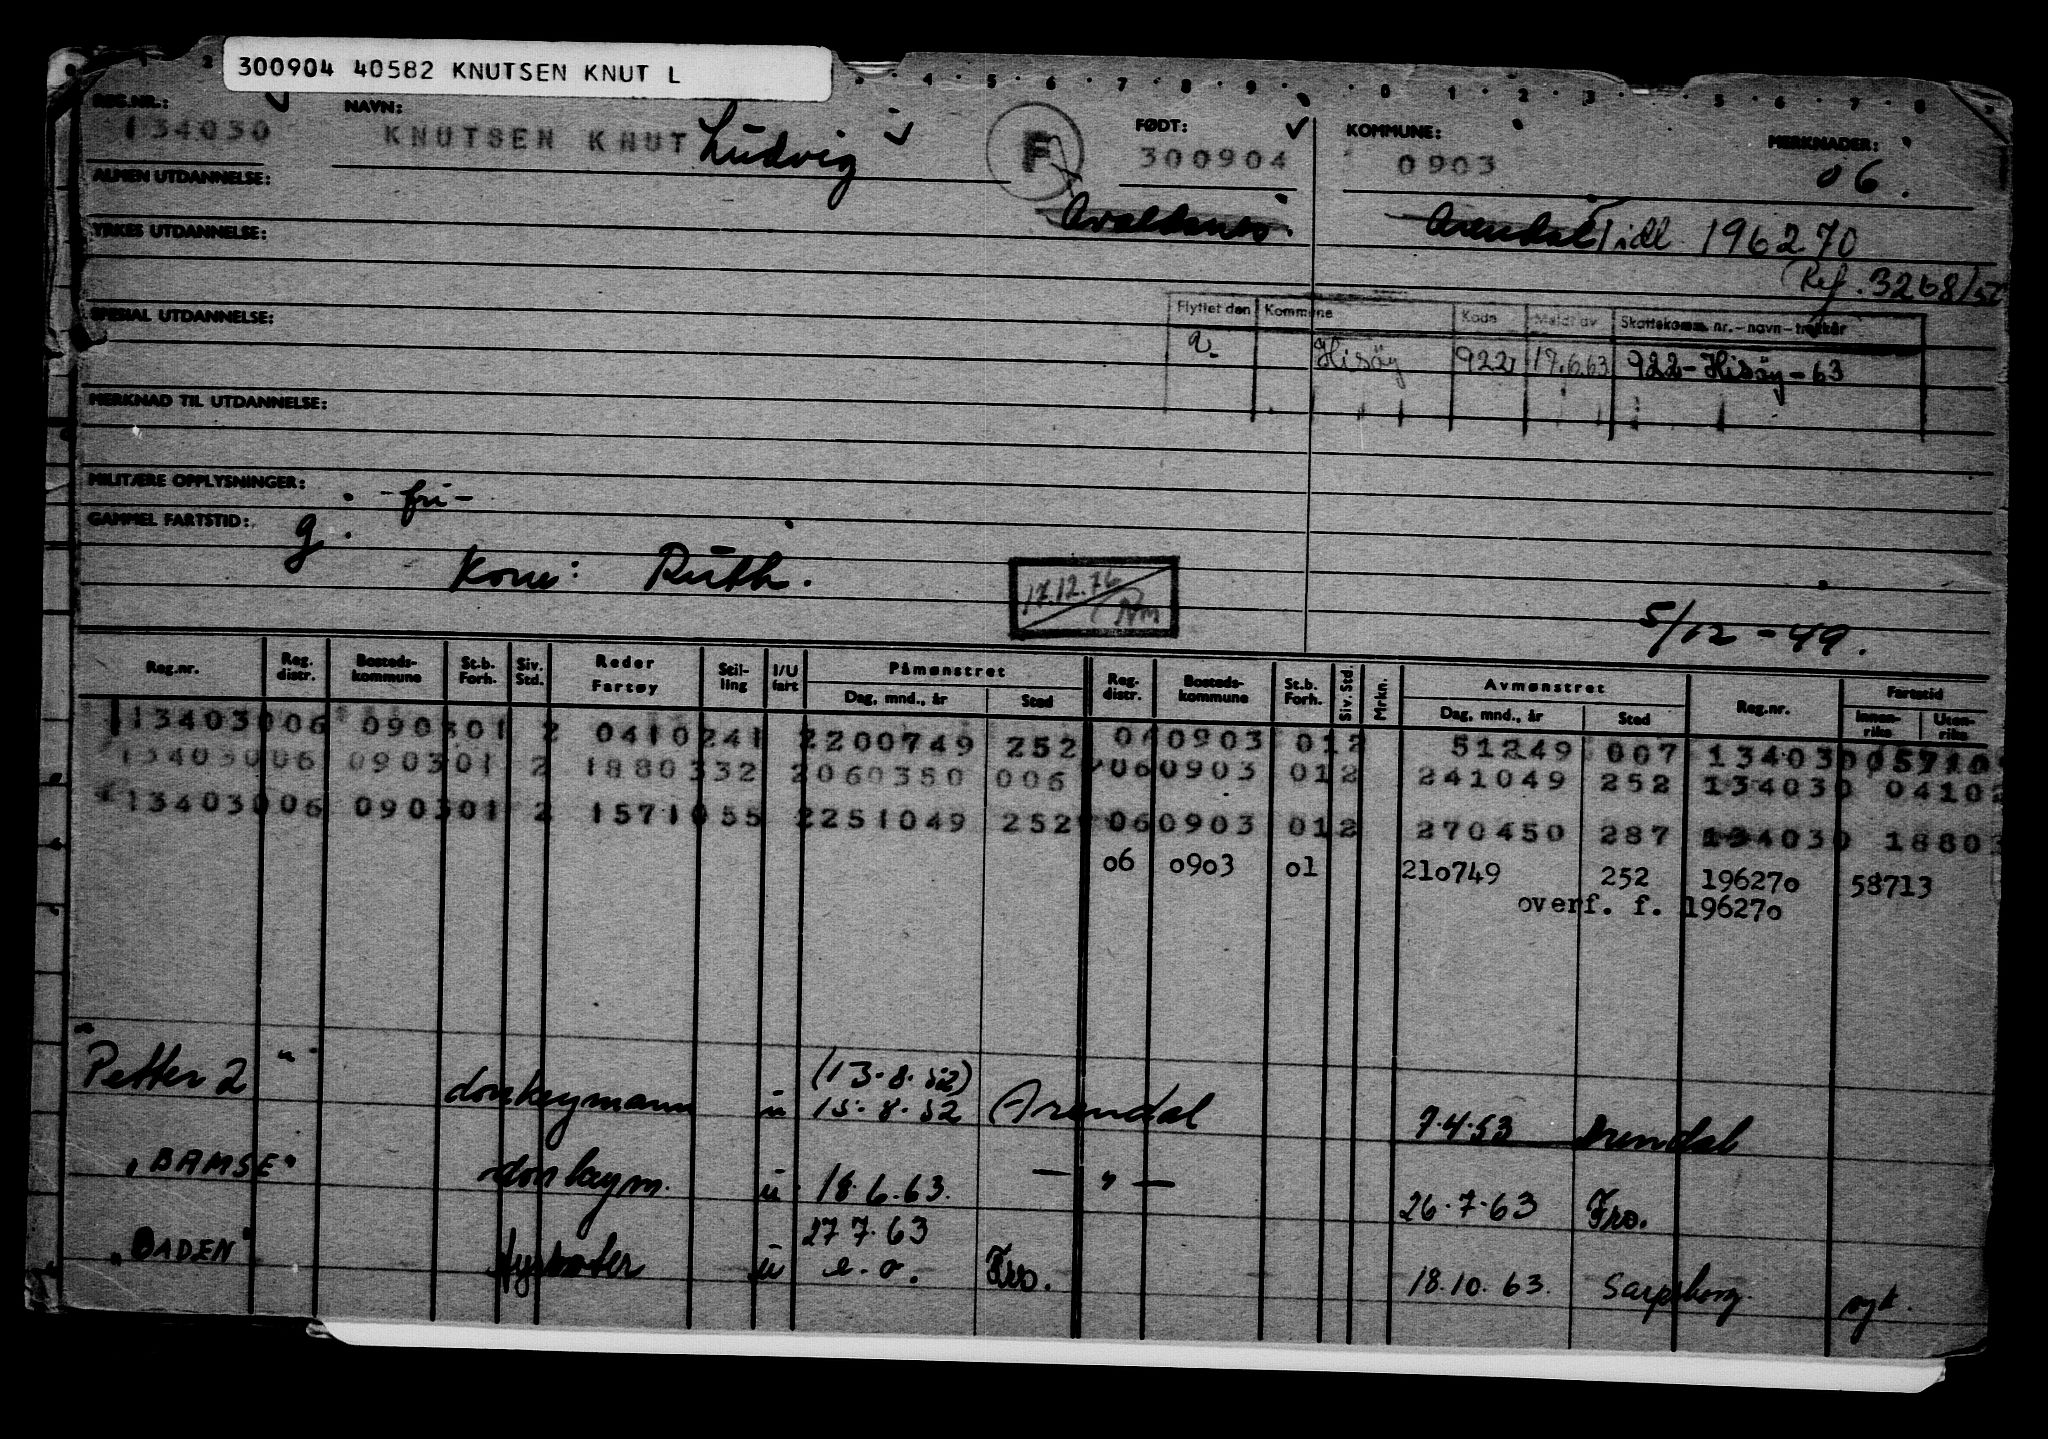 300904 40582 KNUTSEN KNUT L
REG.NR.: NAVN: FØDT: KOMMUNE: MERKNADER:
134030 KNUTSEN KNUT Ludvig F 300904 0903 06.
ALMEN UTDANNELSE:
Arendal Tidl. 196270
YRKES UTDANNELSE:
(Ref. 3268/52
Flyttet den Kommune Kode Meldt av Skattekomm. nr.-navn-trekkår
SPESIAL UTDANNELSE:
Hisöy 922 17.6.63 922-Hisöy-63
MERKNAD TIL UTDANNELSE:
MILITÆRE OPPLYSNINGER: -fri-
GAMMEL FARTSTID: g.
Kone: Ruth.
17.12.76
5/12-49.
Reg.nr. Reg. distr. Bosteds-kommune St.b. Forh. Siv. Std. Reder Fartøy Stil-ling I/U fart Påmønstret Dag, mnd., år Sted Reg. distr. Bosteds-kommune St.b. Forh. Siv. Std. Mrkn. Avmønstret Dag, mnd., år Sted Reg.nr. Fartstid Innen-riks Uten-riks
134030 06 0903 01 2 0410241 2200749 252 06 0903 01 2 51249 007 134030 05710
134030 06 0903 01 2 1880332 2060350 006 06 0903 01 2 241049 252 134030 04102
134030 06 0903 01 2 1571055 2251049 252 06 0903 01 2 270450 287 134030 18803
06 0903 01 210749 252 196270 58713
overf. f. 196270
"Petter 2" donkeymann u (13.8.52)
15.8.52 Arendal 7.4.53 Arendal
"BAMSE" donkeym. u 18.6.63. — " — 26.7.63 Fro.
"BADEN" fyrbøter u 27.7.63
e.o. Fro. 18.10.63. Sarpsborg. syk.